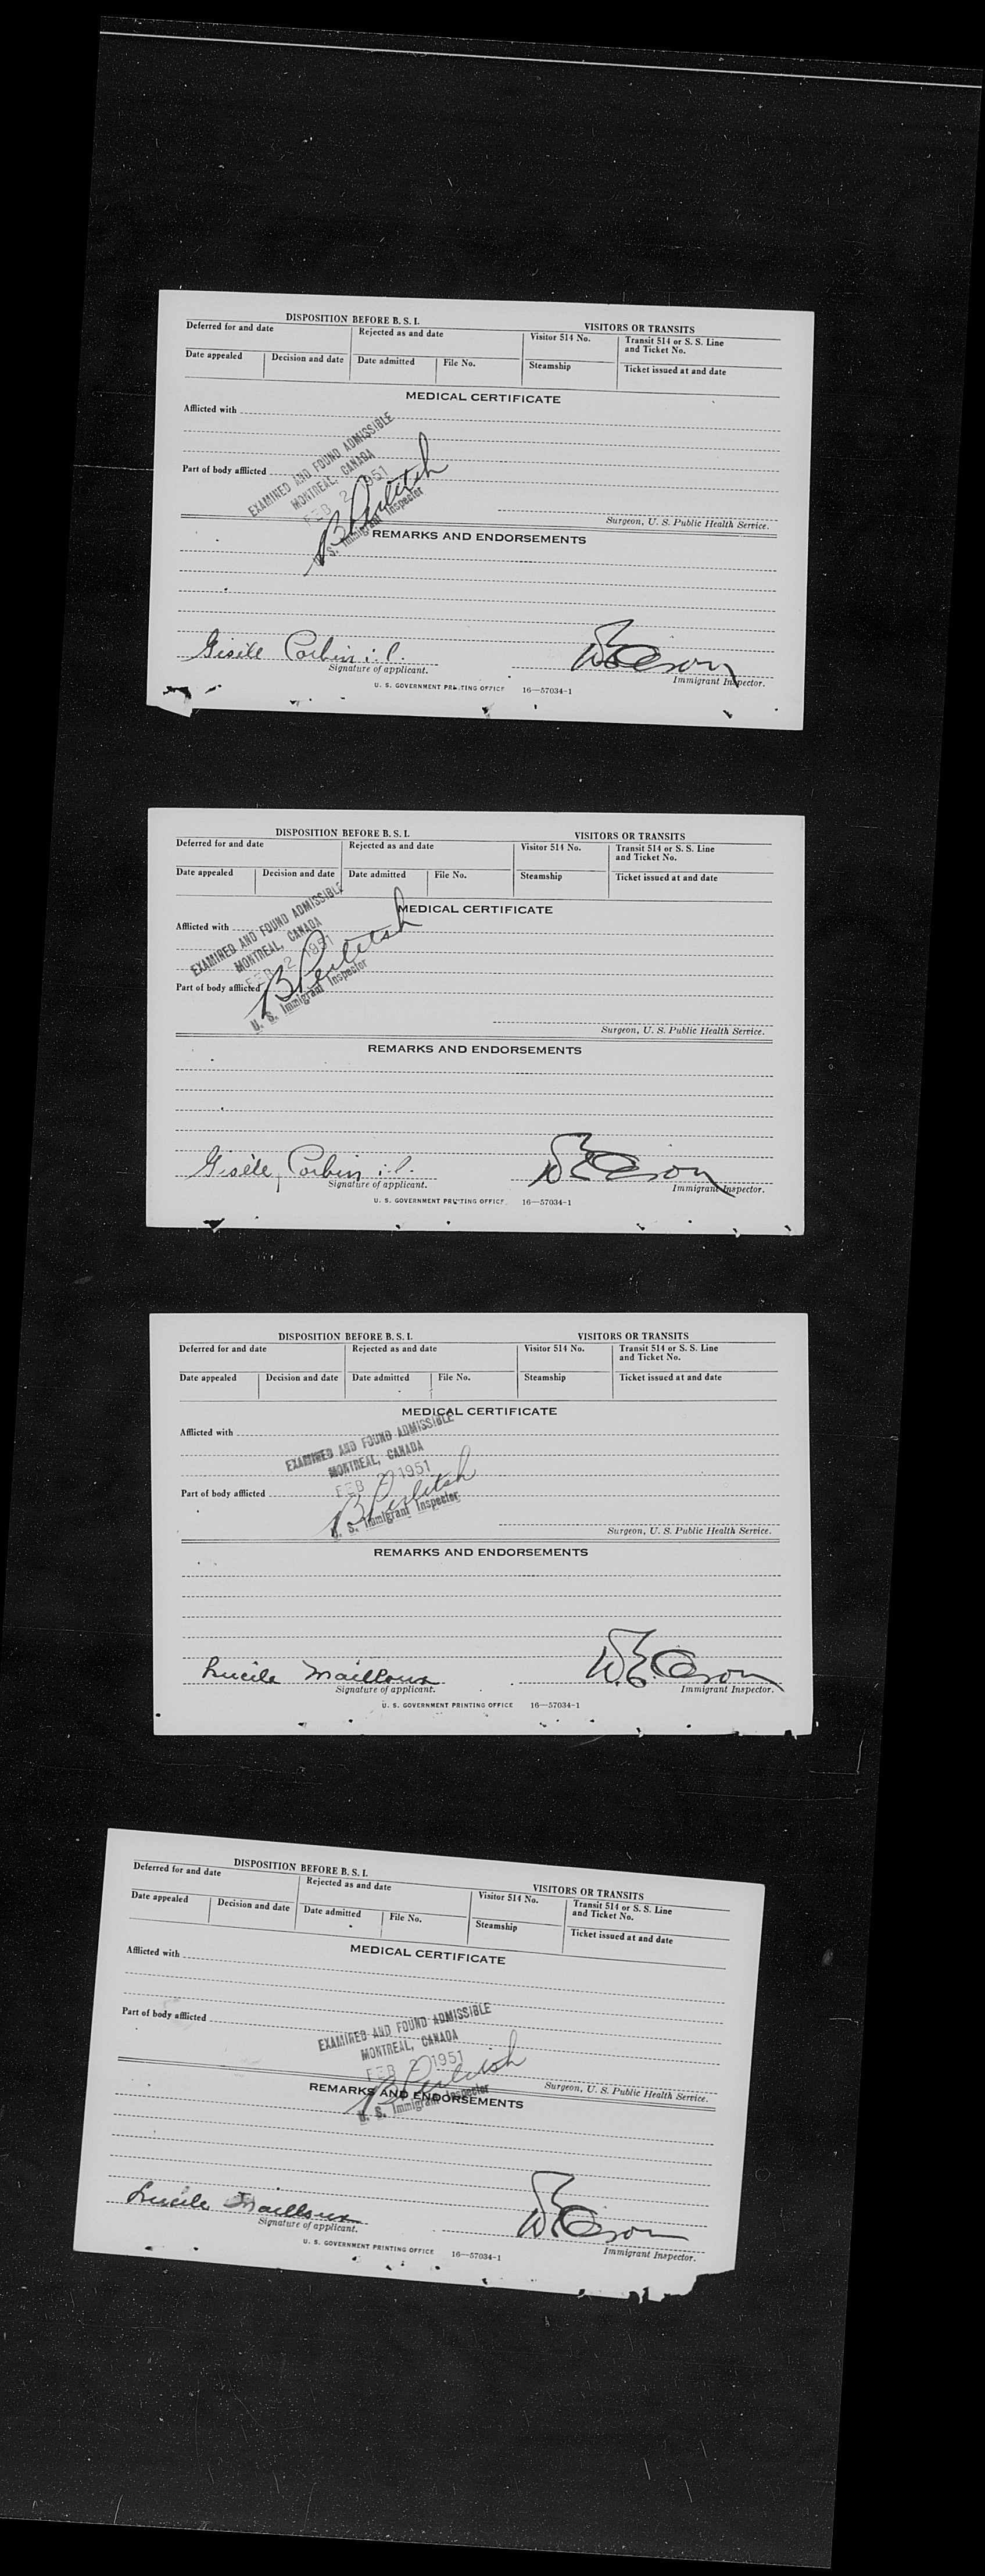 DISPOSITION BEFORE B. S. I. VISITORS OR TRANSITS
Deferred for and date Rejected as and date Visitor 514 No. Transit 514 or S. S. Line and Ticket No.
Date appealed Decision and date Date admitted File No. Steamship Ticket issued at and date
MEDICAL CERTIFICATE
Afflicted with
EXAMINED AND FOUND ADMISSIBLE
MONTREAL, CANADA
Part of body afflicted
FEB 2 1951
U. S. Immigrant Inspector
Surgeon, U. S. Public Health Service.
REMARKS AND ENDORSEMENTS
Gisèle Corbin i.l.
Signature of applicant. Immigrant Inspector.
U. S. GOVERNMENT PRINTING OFFICE 16—57034-1
DISPOSITION BEFORE B. S. I. VISITORS OR TRANSITS
Deferred for and date Rejected as and date Visitor 514 No. Transit 514 or S. S. Line and Ticket No.
Date appealed Decision and date Date admitted File No. Steamship Ticket issued at and date
MEDICAL CERTIFICATE
Afflicted with
EXAMINED AND FOUND ADMISSIBLE
MONTREAL, CANADA
FEB 2 1951
Part of body afflicted
U. S. Immigrant Inspector
Surgeon, U. S. Public Health Service.
REMARKS AND ENDORSEMENTS
Gisèle Corbin i.l.
Signature of applicant. Immigrant Inspector.
U. S. GOVERNMENT PRINTING OFFICE 16—57034-1
DISPOSITION BEFORE B. S. I. VISITORS OR TRANSITS
Deferred for and date Rejected as and date Visitor 514 No. Transit 514 or S. S. Line and Ticket No.
Date appealed Decision and date Date admitted File No. Steamship Ticket issued at and date
MEDICAL CERTIFICATE
Afflicted with
EXAMINED AND FOUND ADMISSIBLE
MONTREAL, CANADA
FEB 2 1951
Part of body afflicted
U. S. Immigrant Inspector
Surgeon, U. S. Public Health Service.
REMARKS AND ENDORSEMENTS
Lucile Mailloux
Signature of applicant. Immigrant Inspector.
U. S. GOVERNMENT PRINTING OFFICE 16—57034-1
DISPOSITION BEFORE B. S. I. VISITORS OR TRANSITS
Deferred for and date Rejected as and date Visitor 514 No. Transit 514 or S. S. Line and Ticket No.
Date appealed Decision and date Date admitted File No. Steamship Ticket issued at and date
MEDICAL CERTIFICATE
Afflicted with
Part of body afflicted
EXAMINED AND FOUND ADMISSIBLE
MONTREAL, CANADA
FEB 2 1951
U. S. Immigrant Inspector
Surgeon, U. S. Public Health Service.
REMARKS AND ENDORSEMENTS
Lucile Mailloux
Signature of applicant. Immigrant Inspector.
U. S. GOVERNMENT PRINTING OFFICE 16—57034-1